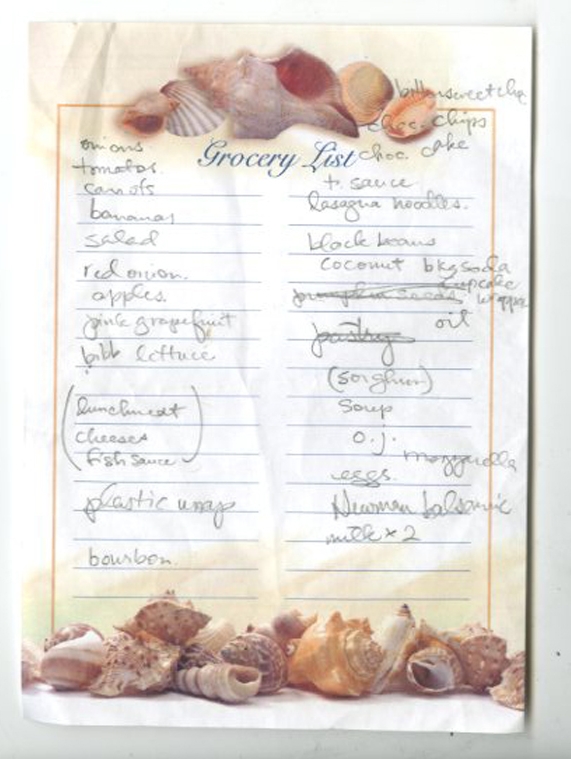 bittersweet cho
choc. chips
Grocery List
choc. cake
onions
tomatos.
carrots
bananas
salad
red onion.
apples.
pink grapefruit
bibb lettuce
(lunchmeat
cheeses
fish sauce)
plastic wrap
bourbon.
t. sauce
lasagna noodles.
black beans
coconut bkg soda
cupcake
pumpkin seeds
oil
pastry
(sorghum)
soup
o.j.
mozzarella
eggs.
Newman balsamic
milk x 2